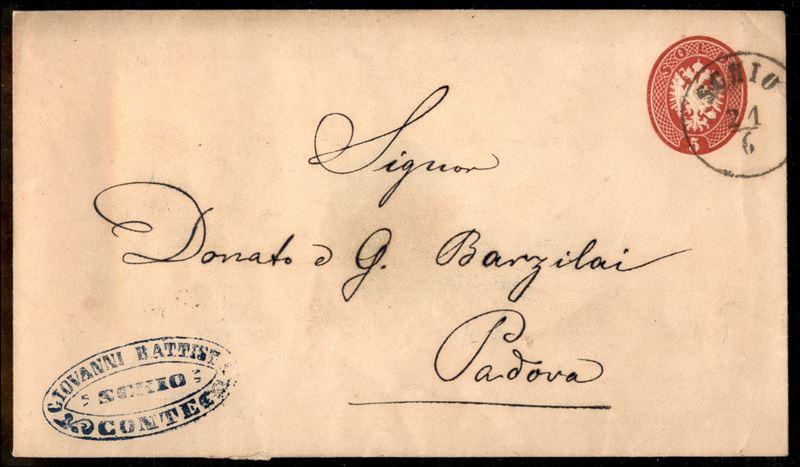 SOLDI
5
SCHIO
21
6
Signor
Donato e G. Barzilai
Padova
GIOVANNI BATTIST
SCHIO
CONTE